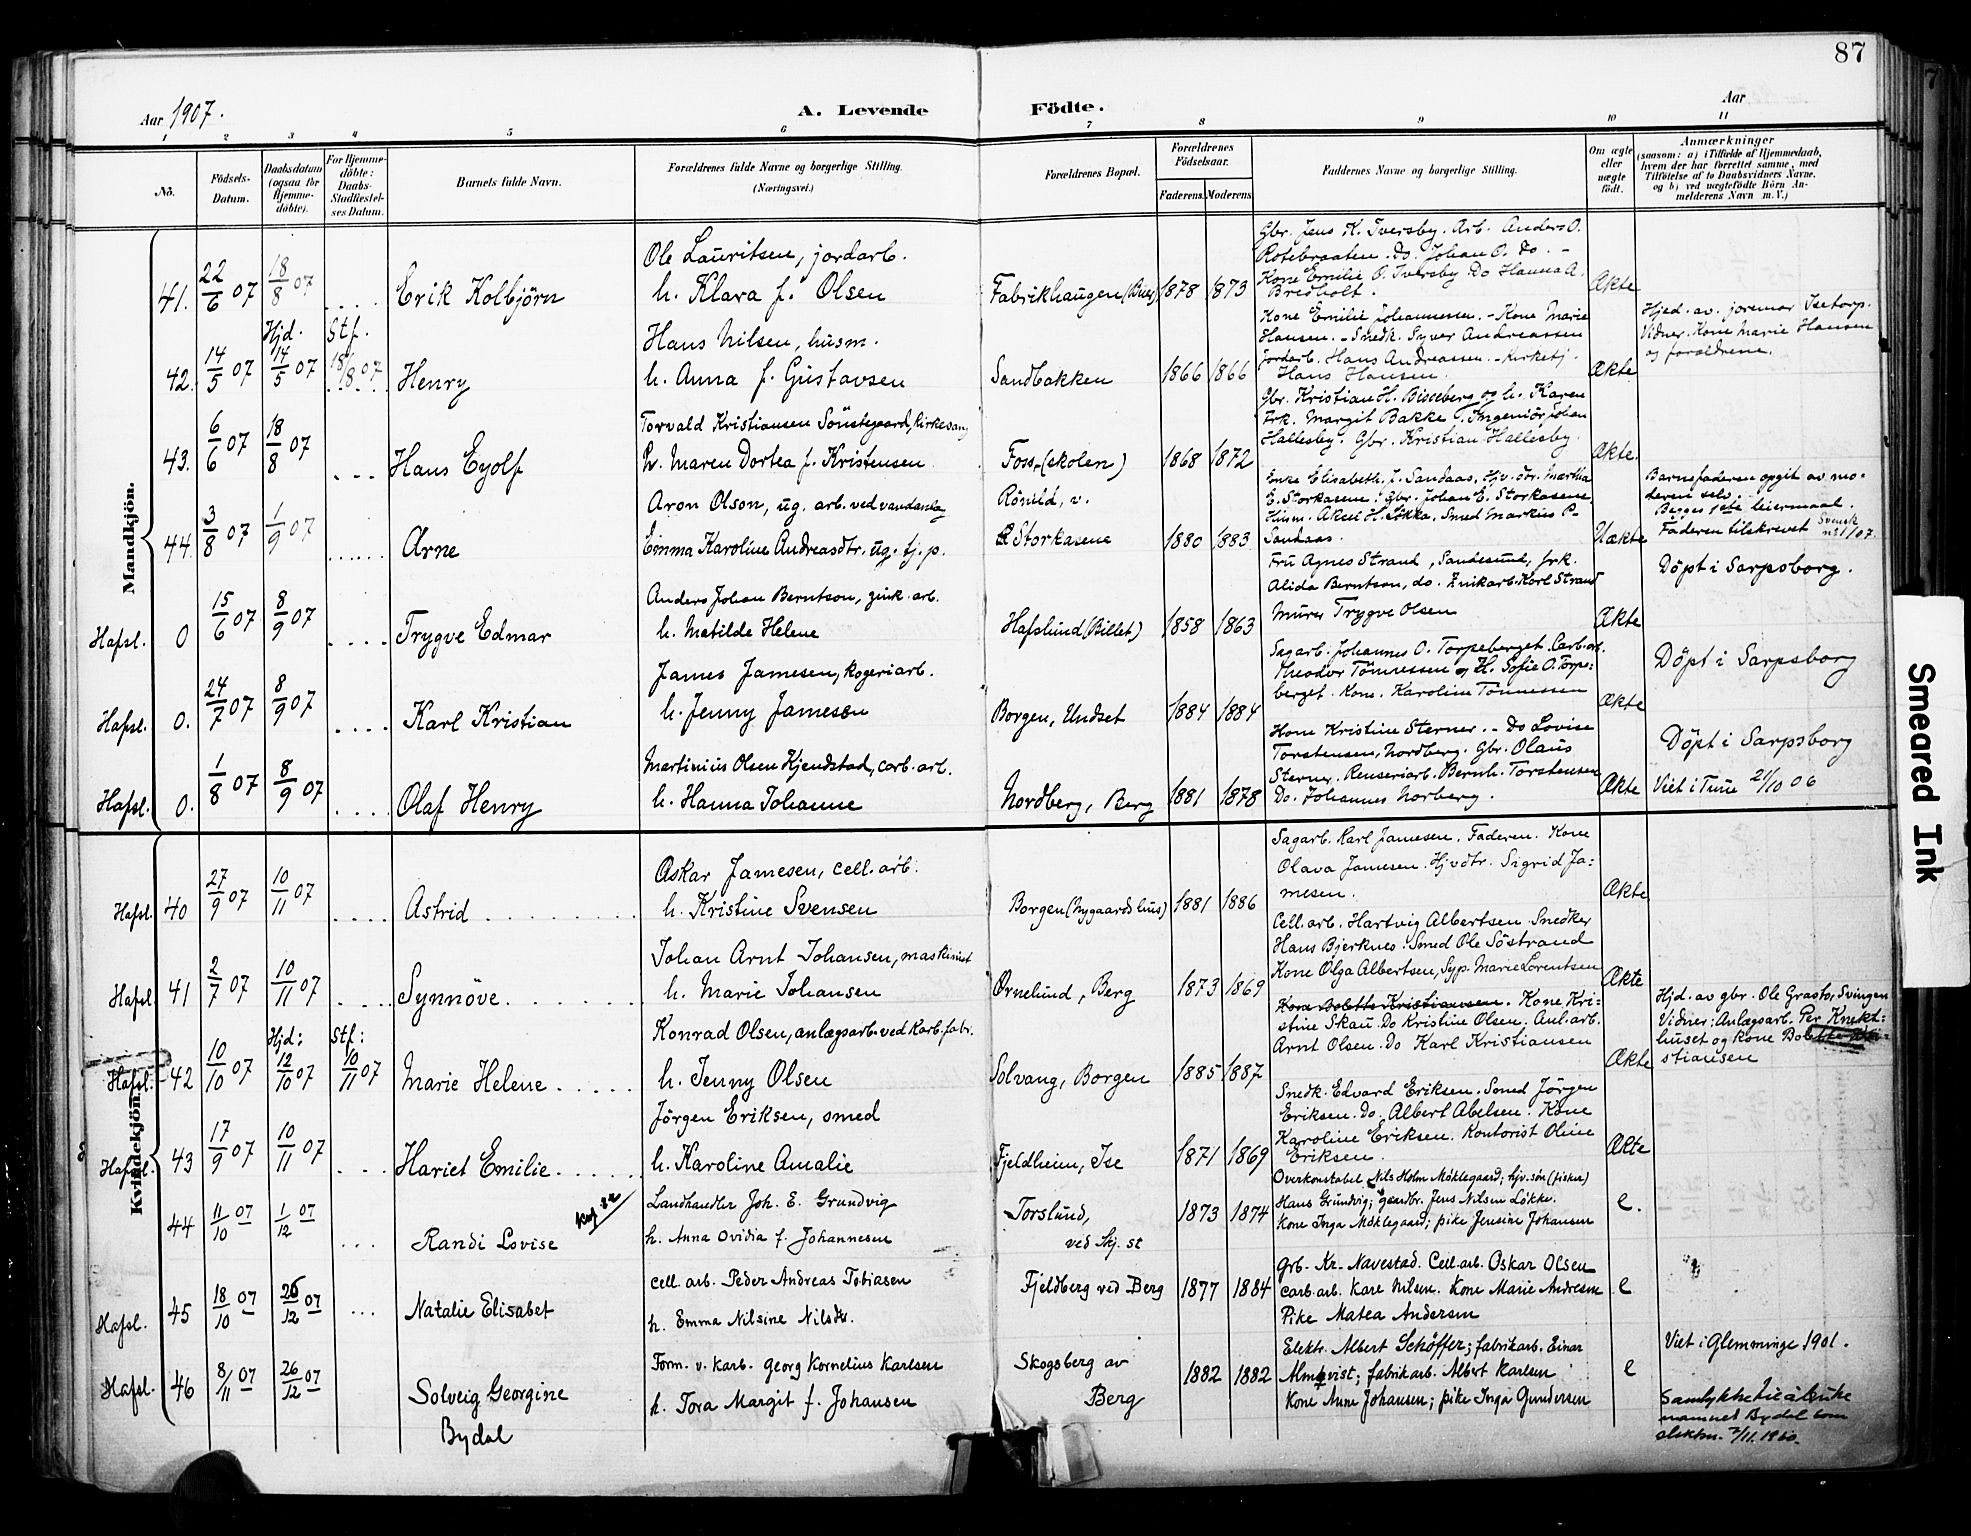 87
Aar 1907.
A. Levende Födte.
Aar
1 2 3 4 5 6 7 8 9 10 11
No.
Födsels-Datum.
Daabsdatum (ogsaa for Hjemme-döbte).
For Hjemme-döbte: Daabs-Stadfæstel-ses Datum.
Barnets fulde Navn.
Forældrenes fulde Navne og borgerlige Stilling. (Næringsvei.)
Forældrenes Bopæl.
Forældrenes Födselsaar.
Faderens. Moderens
Faddernes Navne og borgerlige Stilling.
Om ægte eller uægte födt.
Anmærkninger
(saasom: a) i Tilfælde af Hjemmedaab, hvem der har forrettet samme, med Tilföielse af to Daabsvidners Navne, og b) ved uægtefödte Börn An-melderens Navn m.V.)
Mandkjön.
41. 22/6 07 18/8 07 Erik Kolbjörn
Ole Lauritsen, jordarb.
h. Klara f. Olsen
Fabrikhaugen 1878 1873
Gbr. Jens K. Iversby. Arb. Anders O.
Rotebraaten. Do. Johan O. Do. -
Kone Emilie O. Iversby Do Hanna A.
Bredholt.
Ækte
42. Hjd. 14/5 07 14/5 07 Stf. 18/8 07 Henry
Hans Nilsen, husm.
h. Anna f. Gustavsen
Sandbakken 1866 1866
Kone Emilie Johannessen. - Kone Marie
Hansen. - Snedk. Syver Andreassen
Jordarb. Hans Andreassen. - Kirketj.
Hans Hansen.
Ækte
Hjed. av. joremor Isetorp.
Vidner. Kone Marie Hansen
og forældrene.
43. 6/6 07 18/8 07 Hans Eyolf
Torvald Kristiansen Sönstegaard, Kirkesang
h. Maren Dortea f. Kristensen
Foss, (skolen) 1868 1872
Gbr. Kristian H. Bisseberg og h. Karen
Frk. Margit Bakke. Ingeniör Johan
Hallesby. Gbr. Kristian Hallesby.
Ækte.
44. 3/8 07 1/9 07 Arne
Aron Olson, ug. arb. ved vandanlæg
Emma Karoline Andreasdtr. ug. tj. p.
Rönild, v.
Storkasene 1880 1883
Enke Elisabeth J. Sandaas, Hjv. dtr. Martha
E. Storkasene. Gbr. Johan E. Storkasene,
Husm. Aksel H. Løkka. Smed Markus P-
Sandaas.
Uækte
Barnefaderen opgit av mo-
deren selv.
Begges 1ste leiermaal.
Faderen tilskrevet
Hafsl. 0 15/6 07 8/9 07 Trygve Edmar
Anders Johan Berntson, zink. arb.
h. Matilde Helene
Hafslund (Billet) 1858 1863
Fru Agnes Strand, Sandesund, frk.
Alida Berntson, do. Zinkarb. Karl Strand
Murer Trygve Olsen
Ækte
Döpt i Sarpsborg.
Hafsl. 0. 24/7 07 8/9 07 Karl Kristian
James Jamesen, kogeriarb.
h. Jenny Jamesen
Borgen, Undset 1884 1884
Sagarb. Johannes O. Torpeberget. Carb. arb.
Theodor Tönnessen og H. Sofie O. Torp-
berget. Kone Karoline Tönnessen
Ækte
Döpt i Sarpsborg
Hafsl. 0. 1/8 07 8/9 07 Olaf Henry
Martinius Olsen Kjendstad, carb. arb.
h. Hanna Johanne
Nordberg, Berg 1881 1878
Kone Kristine Sterner. - Do Lovise
Torstensen, Nordberg. Gbr. Olaus
Sterner. Renseriarb. Bernh. Torstensen
Do. Johannes Norberg.
Ækte
Döpt i Sarpsborg
Viet i Tune 21/10 06
Kvindekjön.
Hafsl. 40 27/9 07 10/11 07 Astrid
Oskar Jamesen, cell. arb.
h. Kristine Svensen
Borgen (Nygaards hus) 1881 1886
Sagarb. Karl Jamesen. Faderen. Kone
Olava Jamesen. Hjvdtr. Sigrid Ja=
mesen.
Ækte
Hafsl. 41 2/7 07 10/11 07 Synnöve
Johan Arnt Johansen, maskinist
h. Marie Johansen
Ørnelund, Berg 1873 1869
Cell. arb. Hartvig Albertsen. Snedker
Hans Bjerknes. Smed Ole Söstrand
Kone Olga Albertsen, Syp. Marie Lorentsen
Ækte
Hafsl. 42 10/10 07 Hjd: 12/10 07 Stf: 10/11 07 Marie Helene
Konrad Olsen, anlægsarb. ved Karb. fabr.
h. Jenny Olsen
Solvang, Borgen 1885 1887
Kone Bolette Kristiansen. Kone Kri=
stine Skau. Do Kristine Olsen. Anl. arb.
Arnt Olsen. Do Karl Kristiansen
Ækte
Hjd. av gbr. Ole Grasto, Svingen
Vidner: Anlægsarb. Per Knekt:
huset og kone Bolette Kri-
stiansen
Hafsl. 43 17/9 07 10/11 07 Hariet Emilie
Jörgen Eriksen, smed
h. Karoline Amalie
Fjeldheim, Ise 1871 1869
Snedk. Edvard Eriksen. Smed Jörgen
Eriksen. Do. Albert Abelsen. Kone
Karoline Eriksen. Kontorist Oline
Eriksen.
Ækte
44 11/10 07 1/12 07 Randi Lovise
Landhandler Joh. E. Grundvig
h. Anna Ovidia f. Johannesen
Torslund,
ved Skj. st
1873 1874
Overkonstabel Nils Holm Møklegaard; hjv. søn (fisker)
Hans Grundvig; gaardbr. Jens Nilsen Løkke.
Kone Inga Møklegaard; pike Jensine Johansen
e.
Hafsl. 45 18/10 07 26/12 07 Natalie Elisabet
Cell. arb. Peder Andreas Tobiasen
h. Emma Nilsine Nilsdtr.
Fjeldberg ved Berg 1877 1884
Grb. Kr. Navestad. Cell. arb. Oskar Olsen
Carb. arb. Kare Nilsen. Kone Marie Andresen
Pike Matea Andersen
e
Hafsl. 46 8/11 07 26/12 07 Solveig Georgine
Bydal
Form. v. karb. Georg Kornelius Karlsen
h. Tora Margit f. Johansen
Skogsberg av
Berg
1882 1882
Elektr. Albert Schöffer; fabrikarb. Einar
Almqvist; fabrikarb. Albert Karlsen
Kone Anne Johansen; pike Inga Gundersen
e
Viet i Glemminge 1901.
Samtykke til å bruke
namnet Bydal som
slektsn. 7/11.1960.
Smeared Ink